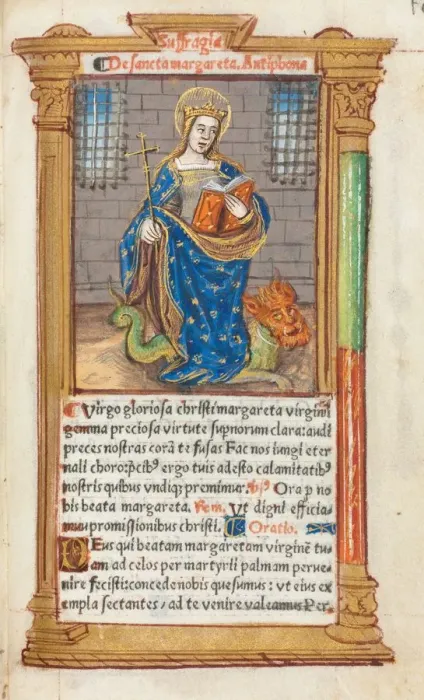 Suffragia
De sancta margareta. Antiphona
Virgo gloriosa christi margareta virginū
gemma preciosa virtute supnorum clara: audi
preces nostras corā te fusas Fac nos iungi eter
nali choro: p̄cibꝰ ergo tuis adesto calamitatibꝰ
nostris quibus vndiqꝫ premimur. v̄sꝰ Ora p no
bis beata margareta. Rem. Vt digni efficia
mur promissionibus christi. Oratio.
DEus qui beatam margaretam virginē tu
am ad celos per martyrii palmam perue
nire fecisti: concede nobis quesumus: vt eius ex
empla sectantes / ad te venire valeamus Per.